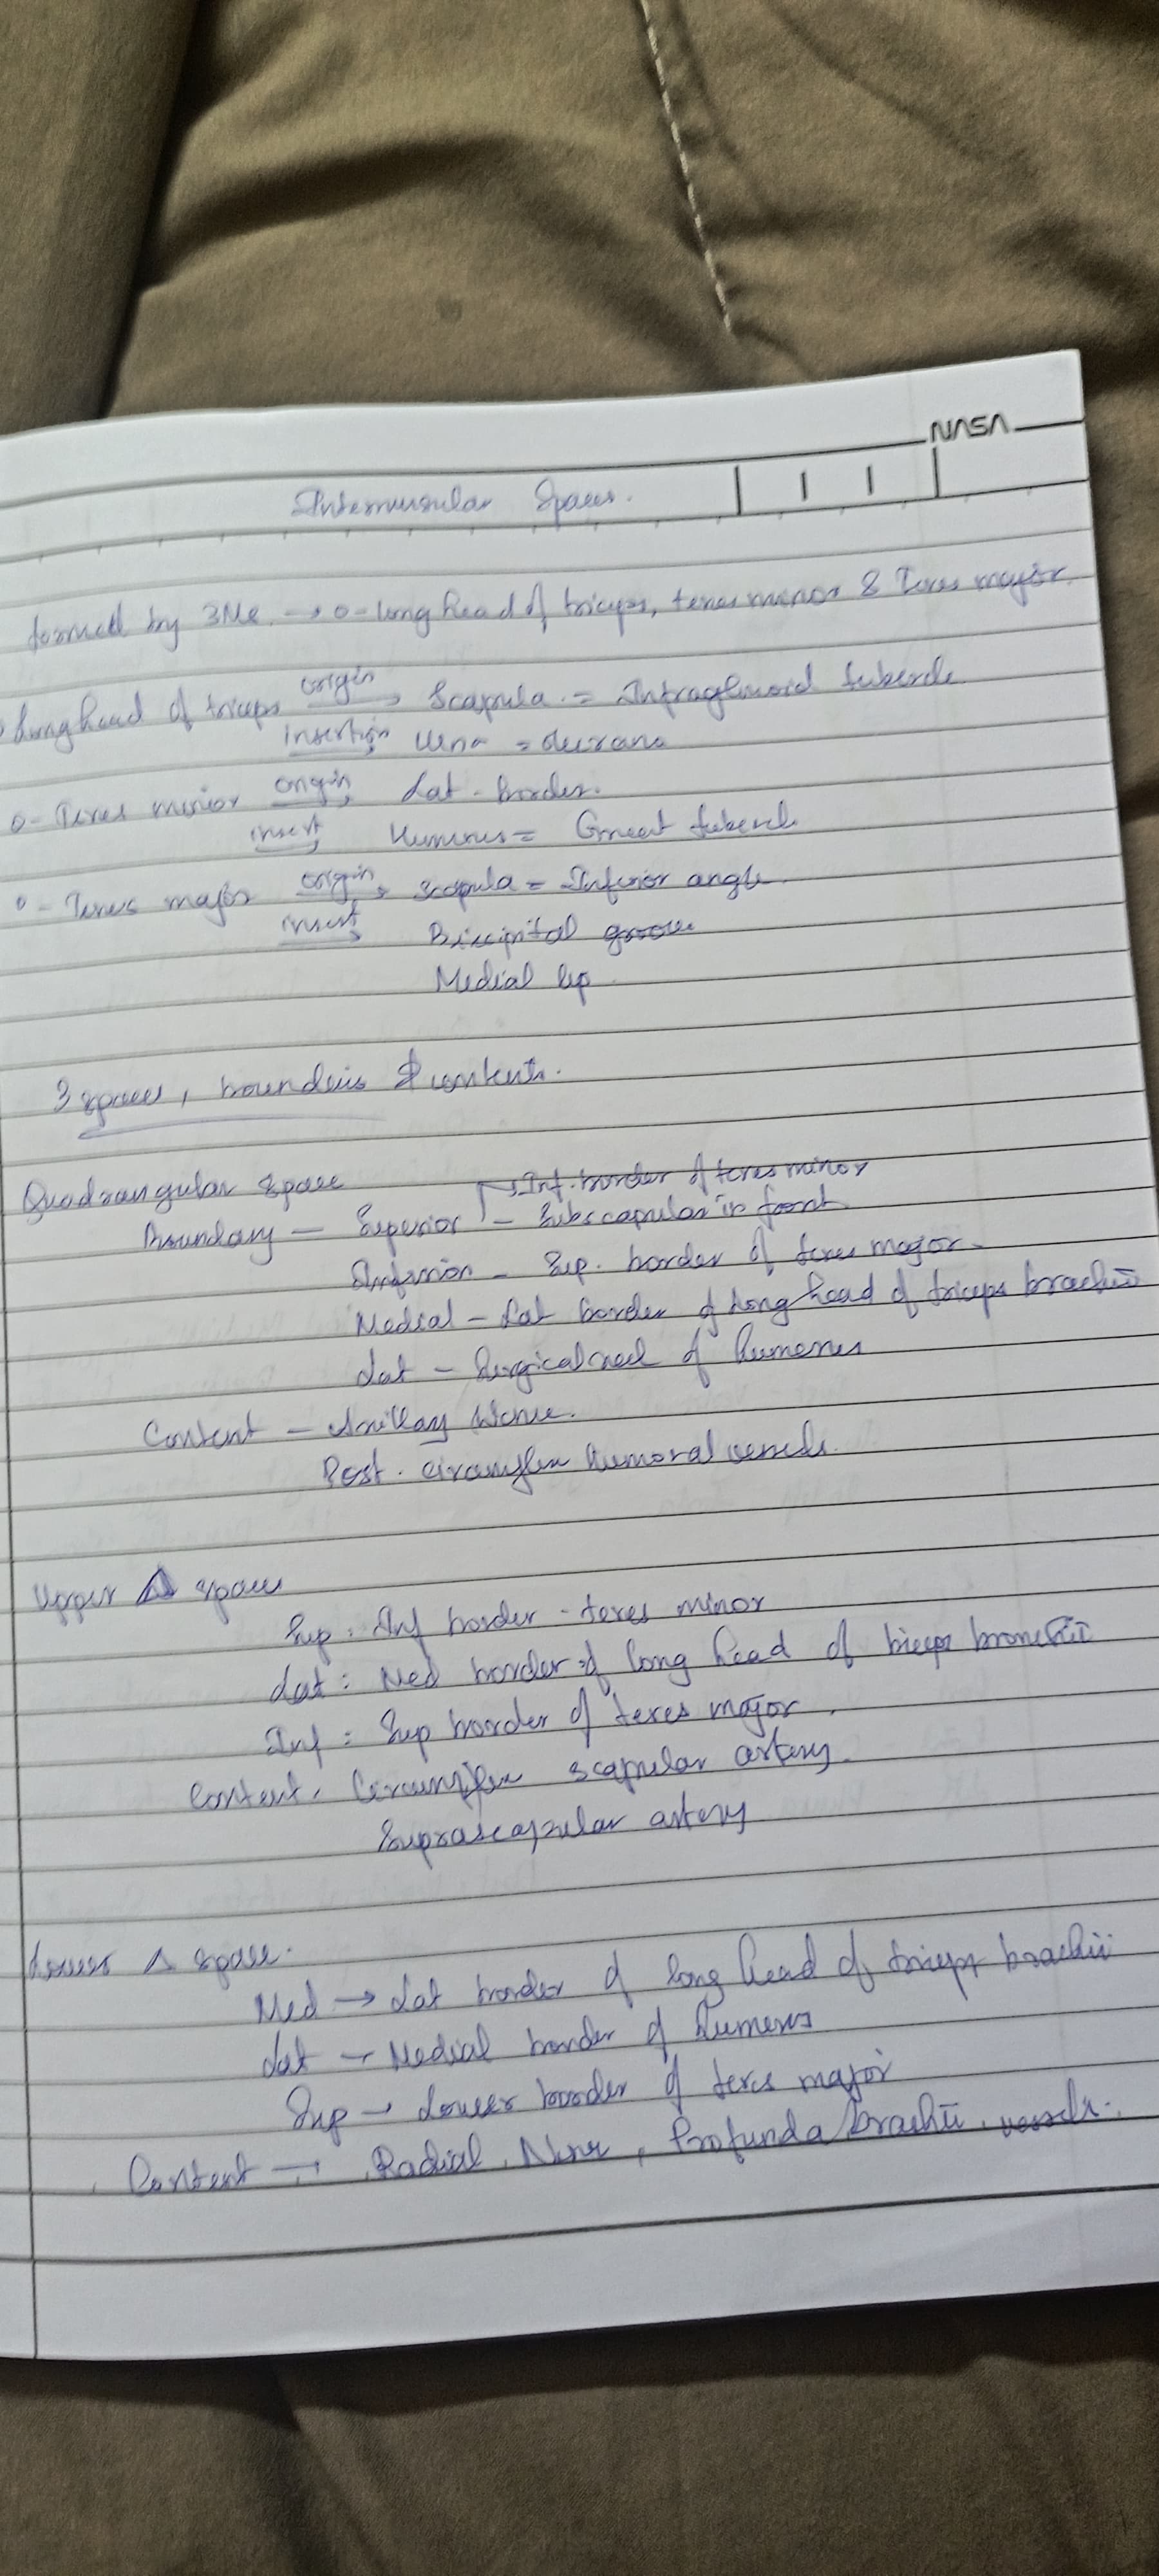 NASA
Intermuscular Spaces.
formed by 3 Me. → o- long head of triceps, teres minor & Teres major.
Long head of triceps origin → Scapula. = Infraglenoid tubercle
insertion → Ulna =
o- Teres minor origin → Lat. border.
insert → Humerus = Great tubercle
o- Teres major origin → scapula = Inferior angle.
insert → Bicipital groove
Medial lip.
3 spaces, & contents.
Quadrangular space → Inf. border of teres minor
Boundary — Superior — Subscapular in front
Inferior — Sup. border of teres major -
Medial — Lat border of long head of triceps brachii
Lat — Surgical neck of humerus
Content — Axillary Nerve.
Post. circumflex humoral vessels.
Upper △ space
Sup: Inf border - teres minor
Lat: Med border of long head of
Inf: Sup border of teres major.
Content. Circumflex scapular artery.
Suprascapular artery
Lower △ space.
Med → Lat border of long head of triceps brachii
Lat → Medial border of humerus
Sup → Lower border of teres major
Content → Radial Nerve, Profunda brachii vessels.